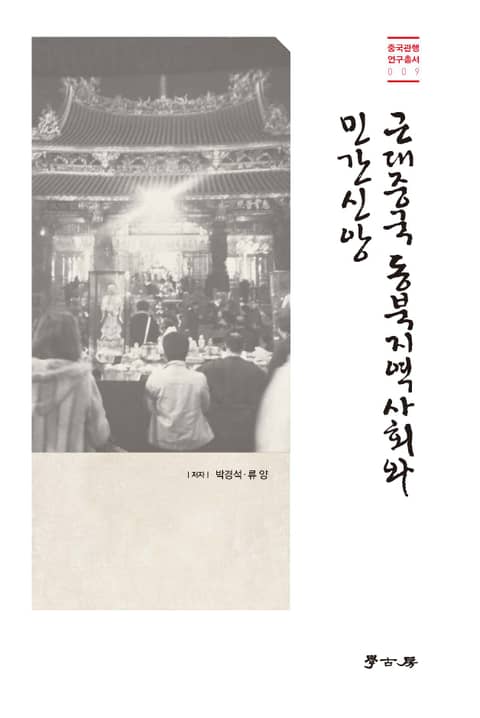 중국관행
연구총서
009
근대중국 동북지역사회와
민간신앙
| 저자 | 박경석·류 양
學古房